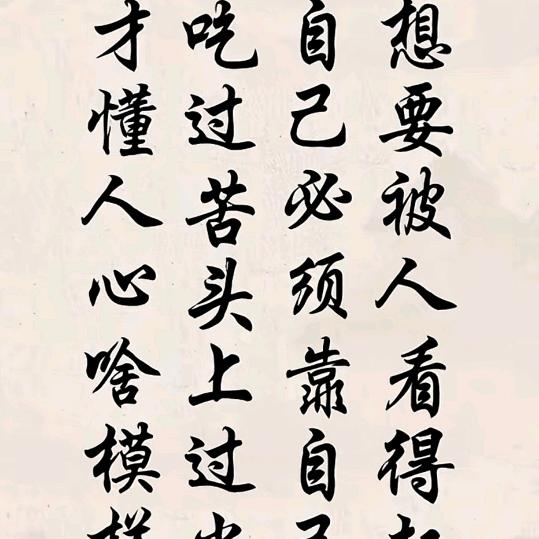 想要被人看得
自己必须靠自己
吃过苦头上过
才懂人心啥模样